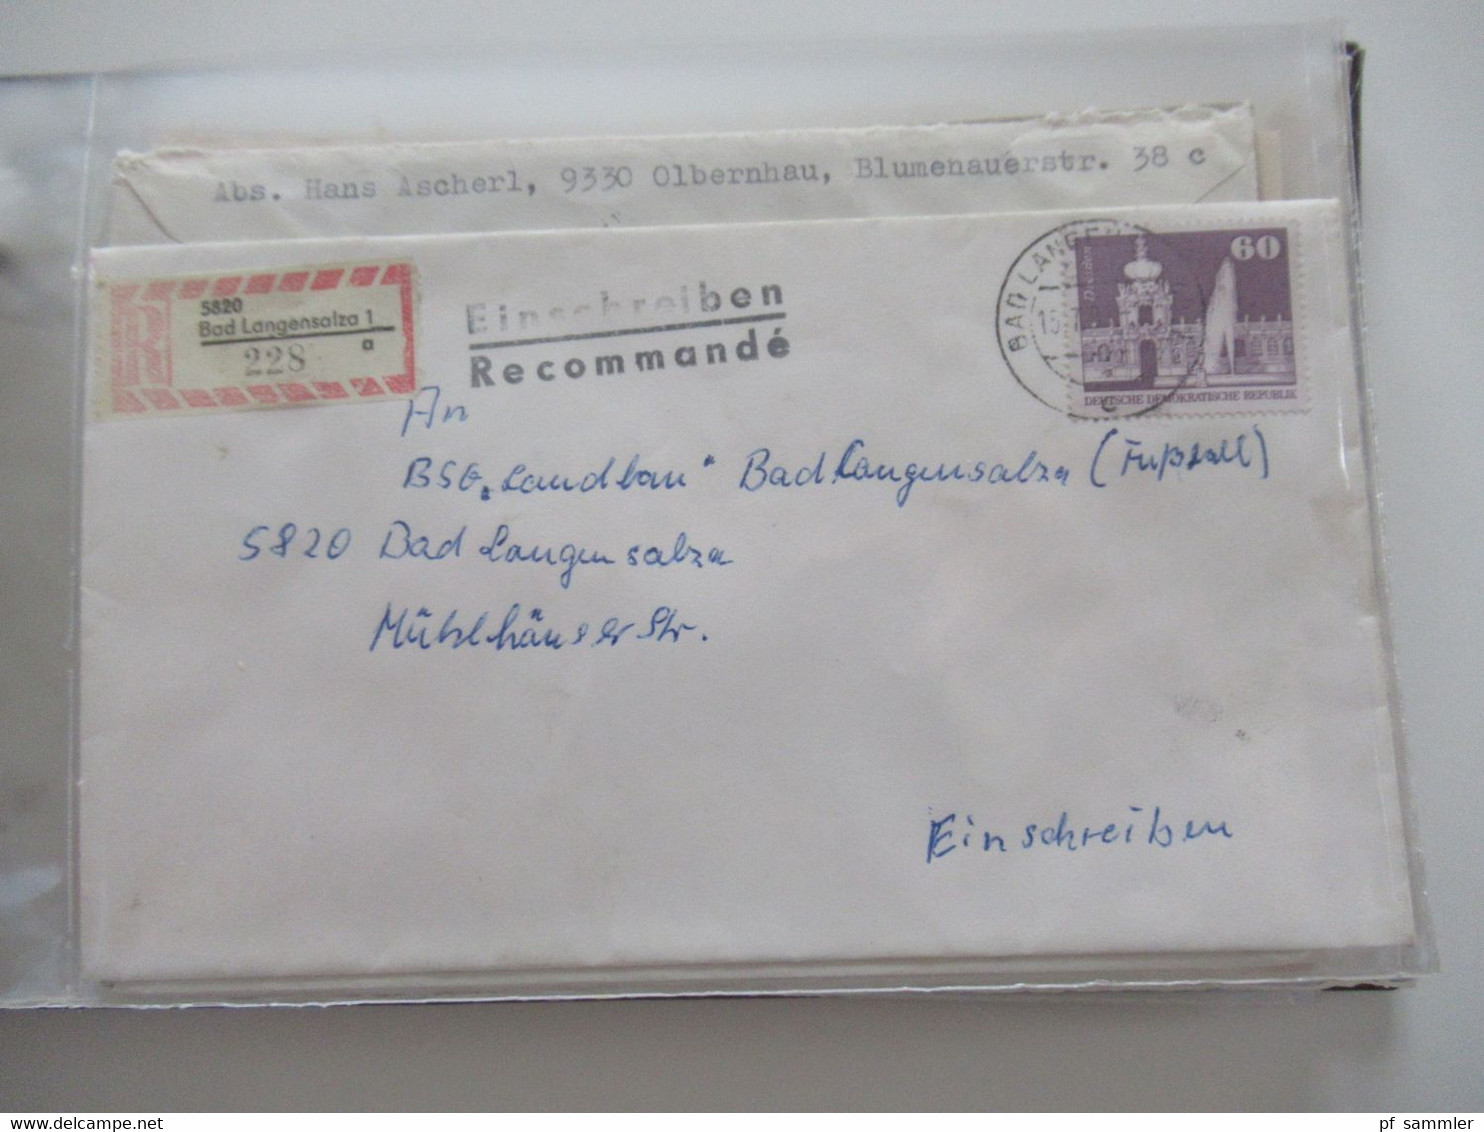 Abs. Hans Ascherl, 9330 Olbernhau, Blumenauerstr. 38 c
R
5820
Bad Langensalza 1
a
228
Einschreiben
Recommandé
BAD LANGEN
15
c
Dresden
60
DEUTSCHE DEMOKRATISCHE REPUBLIK
An
BSG „Landbau" Bad Langensalza (Fußball)
5820 Bad Langensalza
Mühlhäuser Str.
Einschreiben
© www.delcampe.net
pf_sammler